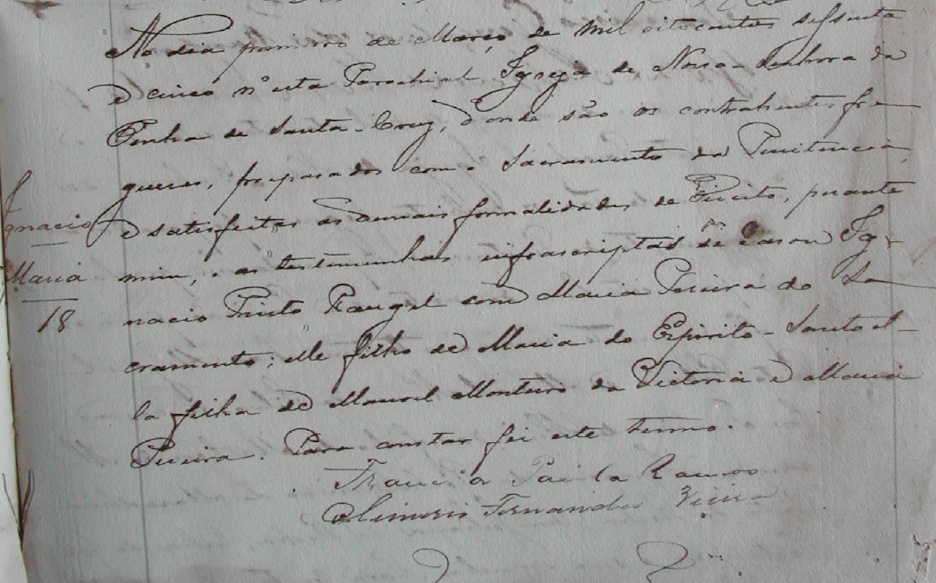 No dia primeiro de Março de mil oitocentos sessenta
e cinco n'esta Parochial Igreja de Nossa Senhora da
Penha de Santa-Cruz, d'onde são os contrahentes fre-
gueses, preparados com o Sacramento da Penitencia,
e satisfeitas as demais formalidades de Direito, perante
mim, e as testemunhas infrascriptas se casou Ig-
nacio Pinto Rangel com Maria Pereira do Sa-
cramento; elle filho de Maria do Espirito-Santo el-
la filha de Manoel Monteiro da Victoria e Maria
Pereira. Para constar fei este termo.
Ignacio
Maria
18
Francisco Paula Ramos
Fernandes Vieira